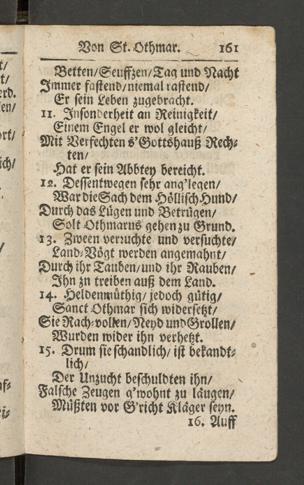 Von St. Othmar. 161
Betten/Seuffzen/Tag und Nacht
Immer fastend/niemal rastend/
Er sein Leben zugebracht.
11. Insonderheit an Reinigkeit/
Einem Engel er wol gleicht/
Mit Verfechten s'Gottshauß Rech-
ten/
Hat er sein Abbtey bereicht.
12. Dessentwegen sehr ang'legen/
War die Sach dem Höllisch Hund/
Durch das Lügen und Betrügen/
Solt Othmarus gehen zu Grund.
13. Zween verruchte und versuchte/
Land-Vögt werden angemahnt/
Durch ihr Tauben/und ihr Rauben/
Ihn zu treiben auß dem Land.
14. Heldenmüthig/jedoch gütig/
Sanct Othmar sich widersetzt/
Sie Rach-vollen/Neyd und Grollen/
Wurden wider ihn verhetzt.
15. Drum sie schandlich/ist bekandt-
lich/
Der Unzucht beschuldten ihn/
Falsche Zeugen g'wohnt zu läugen/
Müßten vor G'richt Kläger seyn.
16. Auff